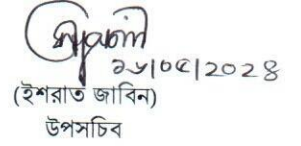 ১৬|০৫|২০২৪
(ইশরাত জাবিন)
উপসচিব